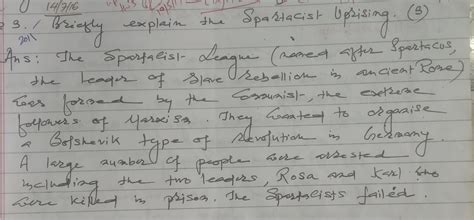 14/7/16
3. / Briefly explain the Spartacist Uprising. (3)
Ans: The Spartacist League (named after Spartacus,
the leader of slave rebellion in ancient Rome)
was formed by the Communist, the extreme
followers of Marxism. They wanted to organise
a Bolshevik type of revolution in Germany.
A large number of people were arrested
including the two leaders, Rosa and Karl who
were killed in prison. The Spartacists failed.